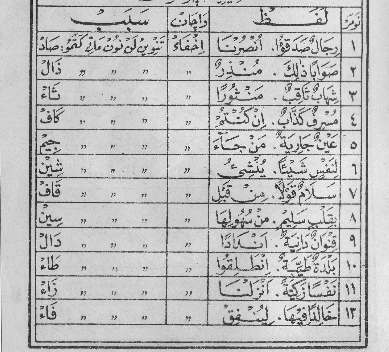 نَوْمَرْ لَفَظْ وَاچَانْ سَبَبْ
١ رِجَالٌ صَدَقُوْا. اُنْصُرْنَا إِخْفَاءْ تَنْوِيْن لَنْ نُوْن مَاتِي كَتَمُو: صَادْ
٢ صَوَابًا ذٰلِكَ. مُنْذِرٌ " " " " ذَالْ
٣ شِهَابٌ ثَاقِبٌ. مَنْثُوْرًا " " " " ثَاءْ
٤ مُسْرِفٌ كَذَّابٌ. اِنْ كُنْتُمْ " " " " كَافْ
٥ عَيْنٌ جَارِيَةٌ. مَنْ جَآءَ " " " " جِيْمْ
٦ لِنَفْسٍ شَيْئًا. يُنْشِئُ " " " " شِيْنْ
٧ سَلَامٌ قَوْلًا. مِنْ قَبْلُ " " " " قَافْ
٨ بِقَلْبٍ سَلِيْمٍ. مِنْ سُهُوْلِهَا " " " " سِيْنْ
٩ قِنْوَانٌ دَانِيَةٌ. اَنْدَادًا " " " " دَالْ
١٠ بَلْدَةٌ طَيِّبَةٌ. اِنْطَلِقُوْا " " " " طَاءْ
١١ نَفْسًا زَكِيَّةً. اَنْزَلْنَا " " " " زَاءْ
١٢ خَالِدًا فِيْهَا. لِيُنْفِقْ " " " " فَاءْ